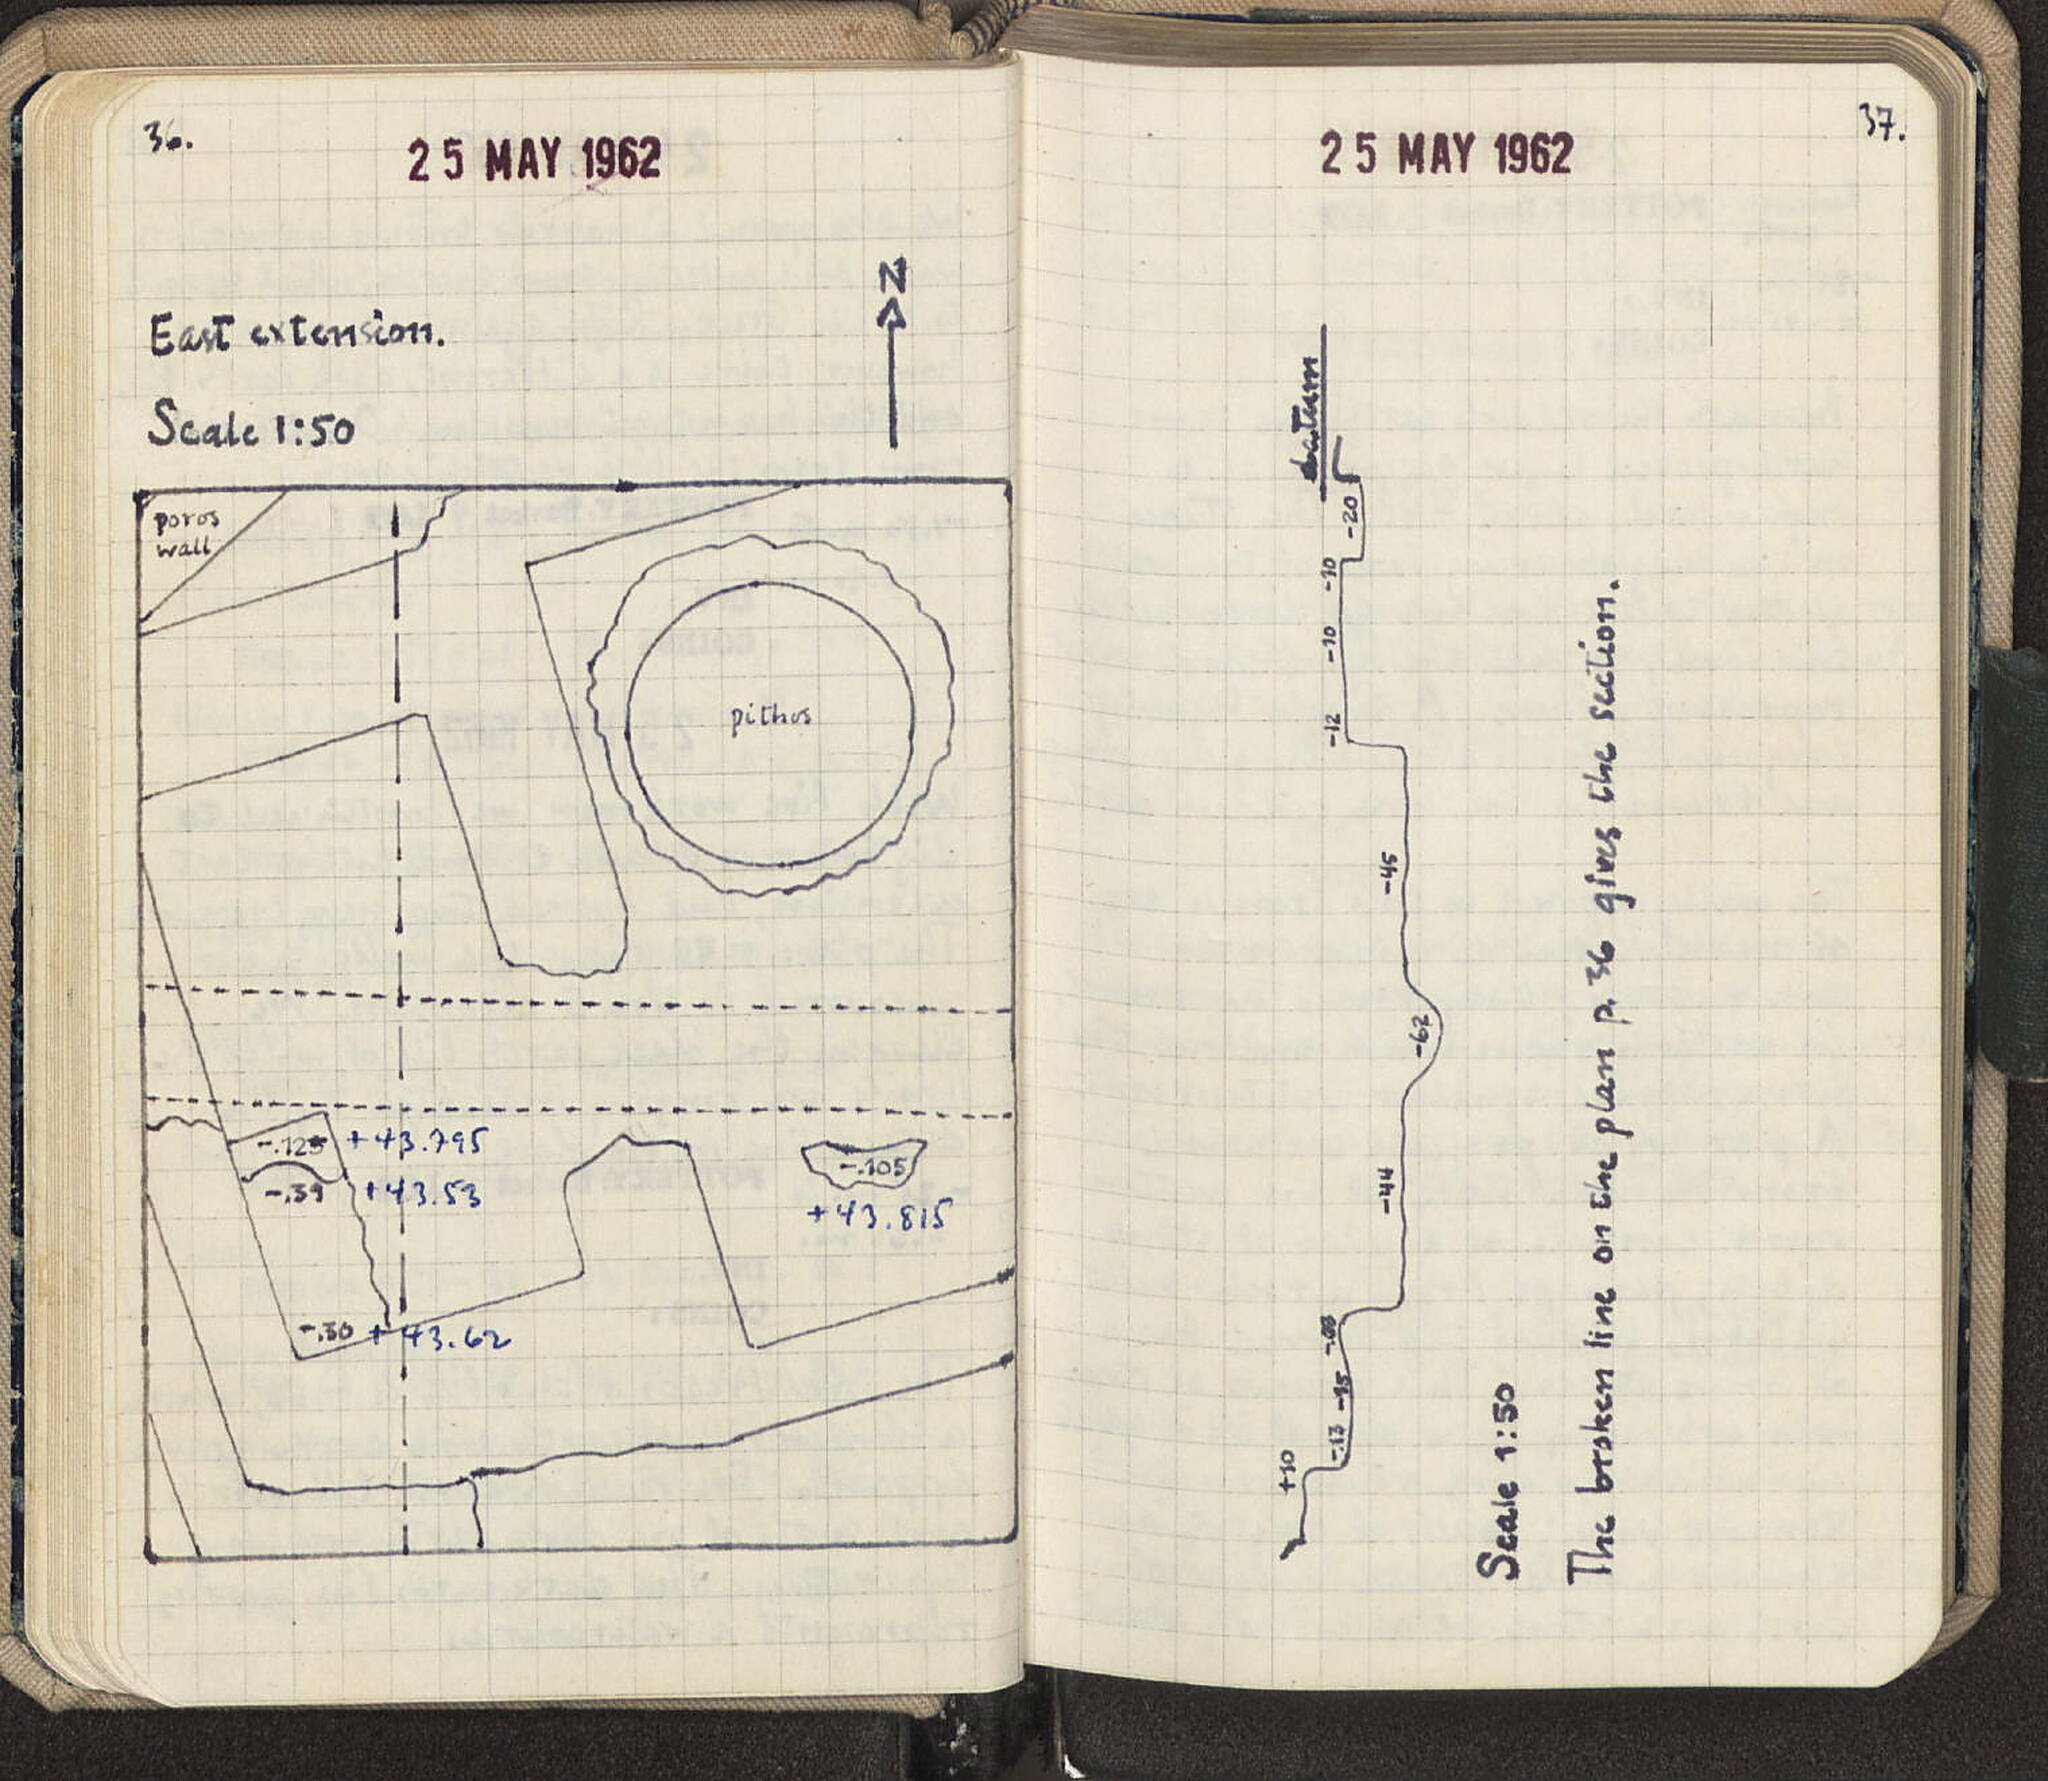 36.
25 MAY 1962
N
East extension.
Scale 1:50
poros
wall
pithos
-.125 +43.795
-.39 +43.53
-.105
+43.815
-.30 +43.62
37.
25 MAY 1962
datum
-20
-10
-10
-12
-45
-62
-44
-15
-13
+10
Scale 1:50
The broken line on the plan p. 36 gives the section.